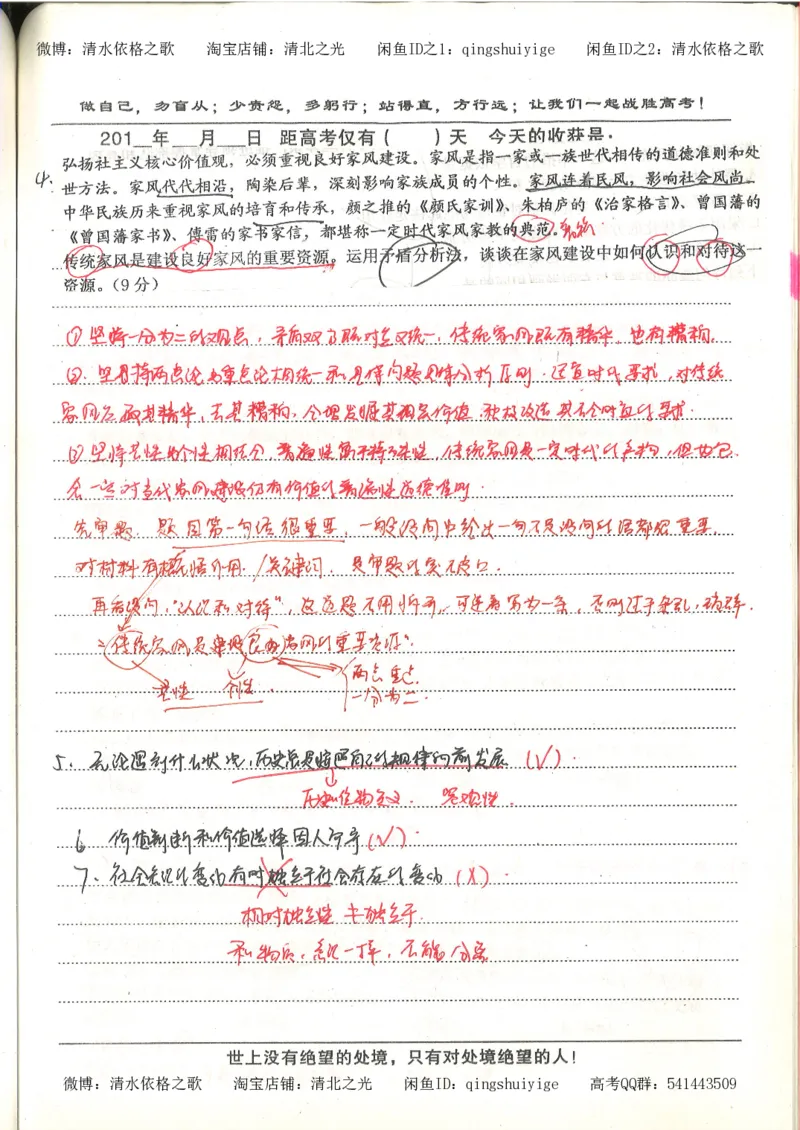 微博：清水依格之歌 淘宝店铺：清北之光 闲鱼ID之1：qingshuiyige 闲鱼ID之2：清水依格之歌
做自己，勿盲从；少责怨，多躬行；站得直，方行远；让我们一起战胜高考！
201 年 月 日 距高考仅有（ ）天 今天的收获是·
4. 弘扬社会主义核心价值观，必须重视良好家风建设。家风是指一家或一族世代相传的道德准则和处
世方法。家风代代相沿，陶染后辈，深刻影响家族成员的个性。家风连着民风，影响社会风尚。
中华民族历来重视家风的培育和传承，颜之推的《颜氏家训》、朱柏庐的《治家格言》、曾国藩的
《曾国藩家书》、傅雷的家书家信，都堪称一定时代家风家教的典范。
传统家风是建设良好家风的重要资源。运用矛盾分析法，谈谈在家风建设中如何认识和对待这一
资源。（9分）
①坚持一分为二的观点，矛盾双方既对立又统一，传统家风既有精华，也有糟粕
②坚持两点论与重点论相统一和具体问题具体分析原则．还宜时代要求，对传统
家风应取其精华，去其糟粕，合理发掘其现实价值，
③坚持共性与个性相结合，普遍性寓于特殊性，传统家风是一定时代的产物，但也包
含一定对当代家风建设仍有价值的普遍性道德准则．
先审题．题目第一句话很重要，一般设问中给出一句不是设问的话都很重要，
对材料有概括作用．/关键词．是审题的突破口．
再看设问，"认识和对待"，这道题不用拆开，可连着写为一条，否则过于杂乱，琐碎．
∴"传统家风是建设良好家风的重要资源"．
共性 个性．
两点重点
一分为二．
5．无论遇到什么状况，历史总是按照自己的规律向前发展（√）．
历史唯物主义．客观性．
6 价值判断和价值选择因人而异（√）．
7、社会意识的变化有时独立于社会存在的变化（×）．
相对独立性 非独立于．
和物质，意识一样，不能分离
世上没有绝望的处境，只有对处境绝望的人！
微博：清水依格之歌 淘宝店铺：清北之光 闲鱼ID：qingshuiyige 高考QQ群：541443509